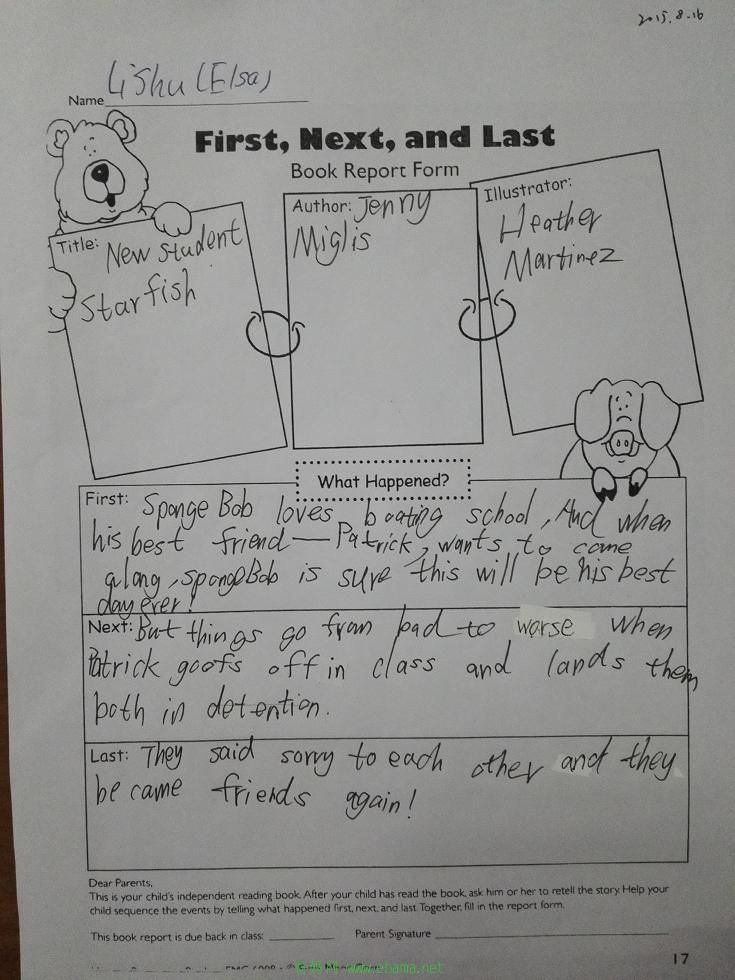 2015.8.16
Name Lishu (Elsa)
First, Next, and Last
Book Report Form
Title: New student
Starfish
Author: Jenny
Miglis
Illustrator:
Heather
Martinez
What Happened?
First: Sponge Bob loves boating school, And when
his best friend — Patrick, wants to come
along, spongeBob is sure this will be his best
day ever!
Next: But things go from bad to worse when
Patrick goofs off in class and lands them
both in detention.
Last: They said sorry to each other and they
became friends again!
Dear Parents,
This is your child's independent reading book. After your child has read the book, ask him or her to retell the story. Help your
child sequence the events by telling what happened first, next, and last. Together, fill in the report form.
This book report is due back in class: Parent Signature
17
www.ebama.net